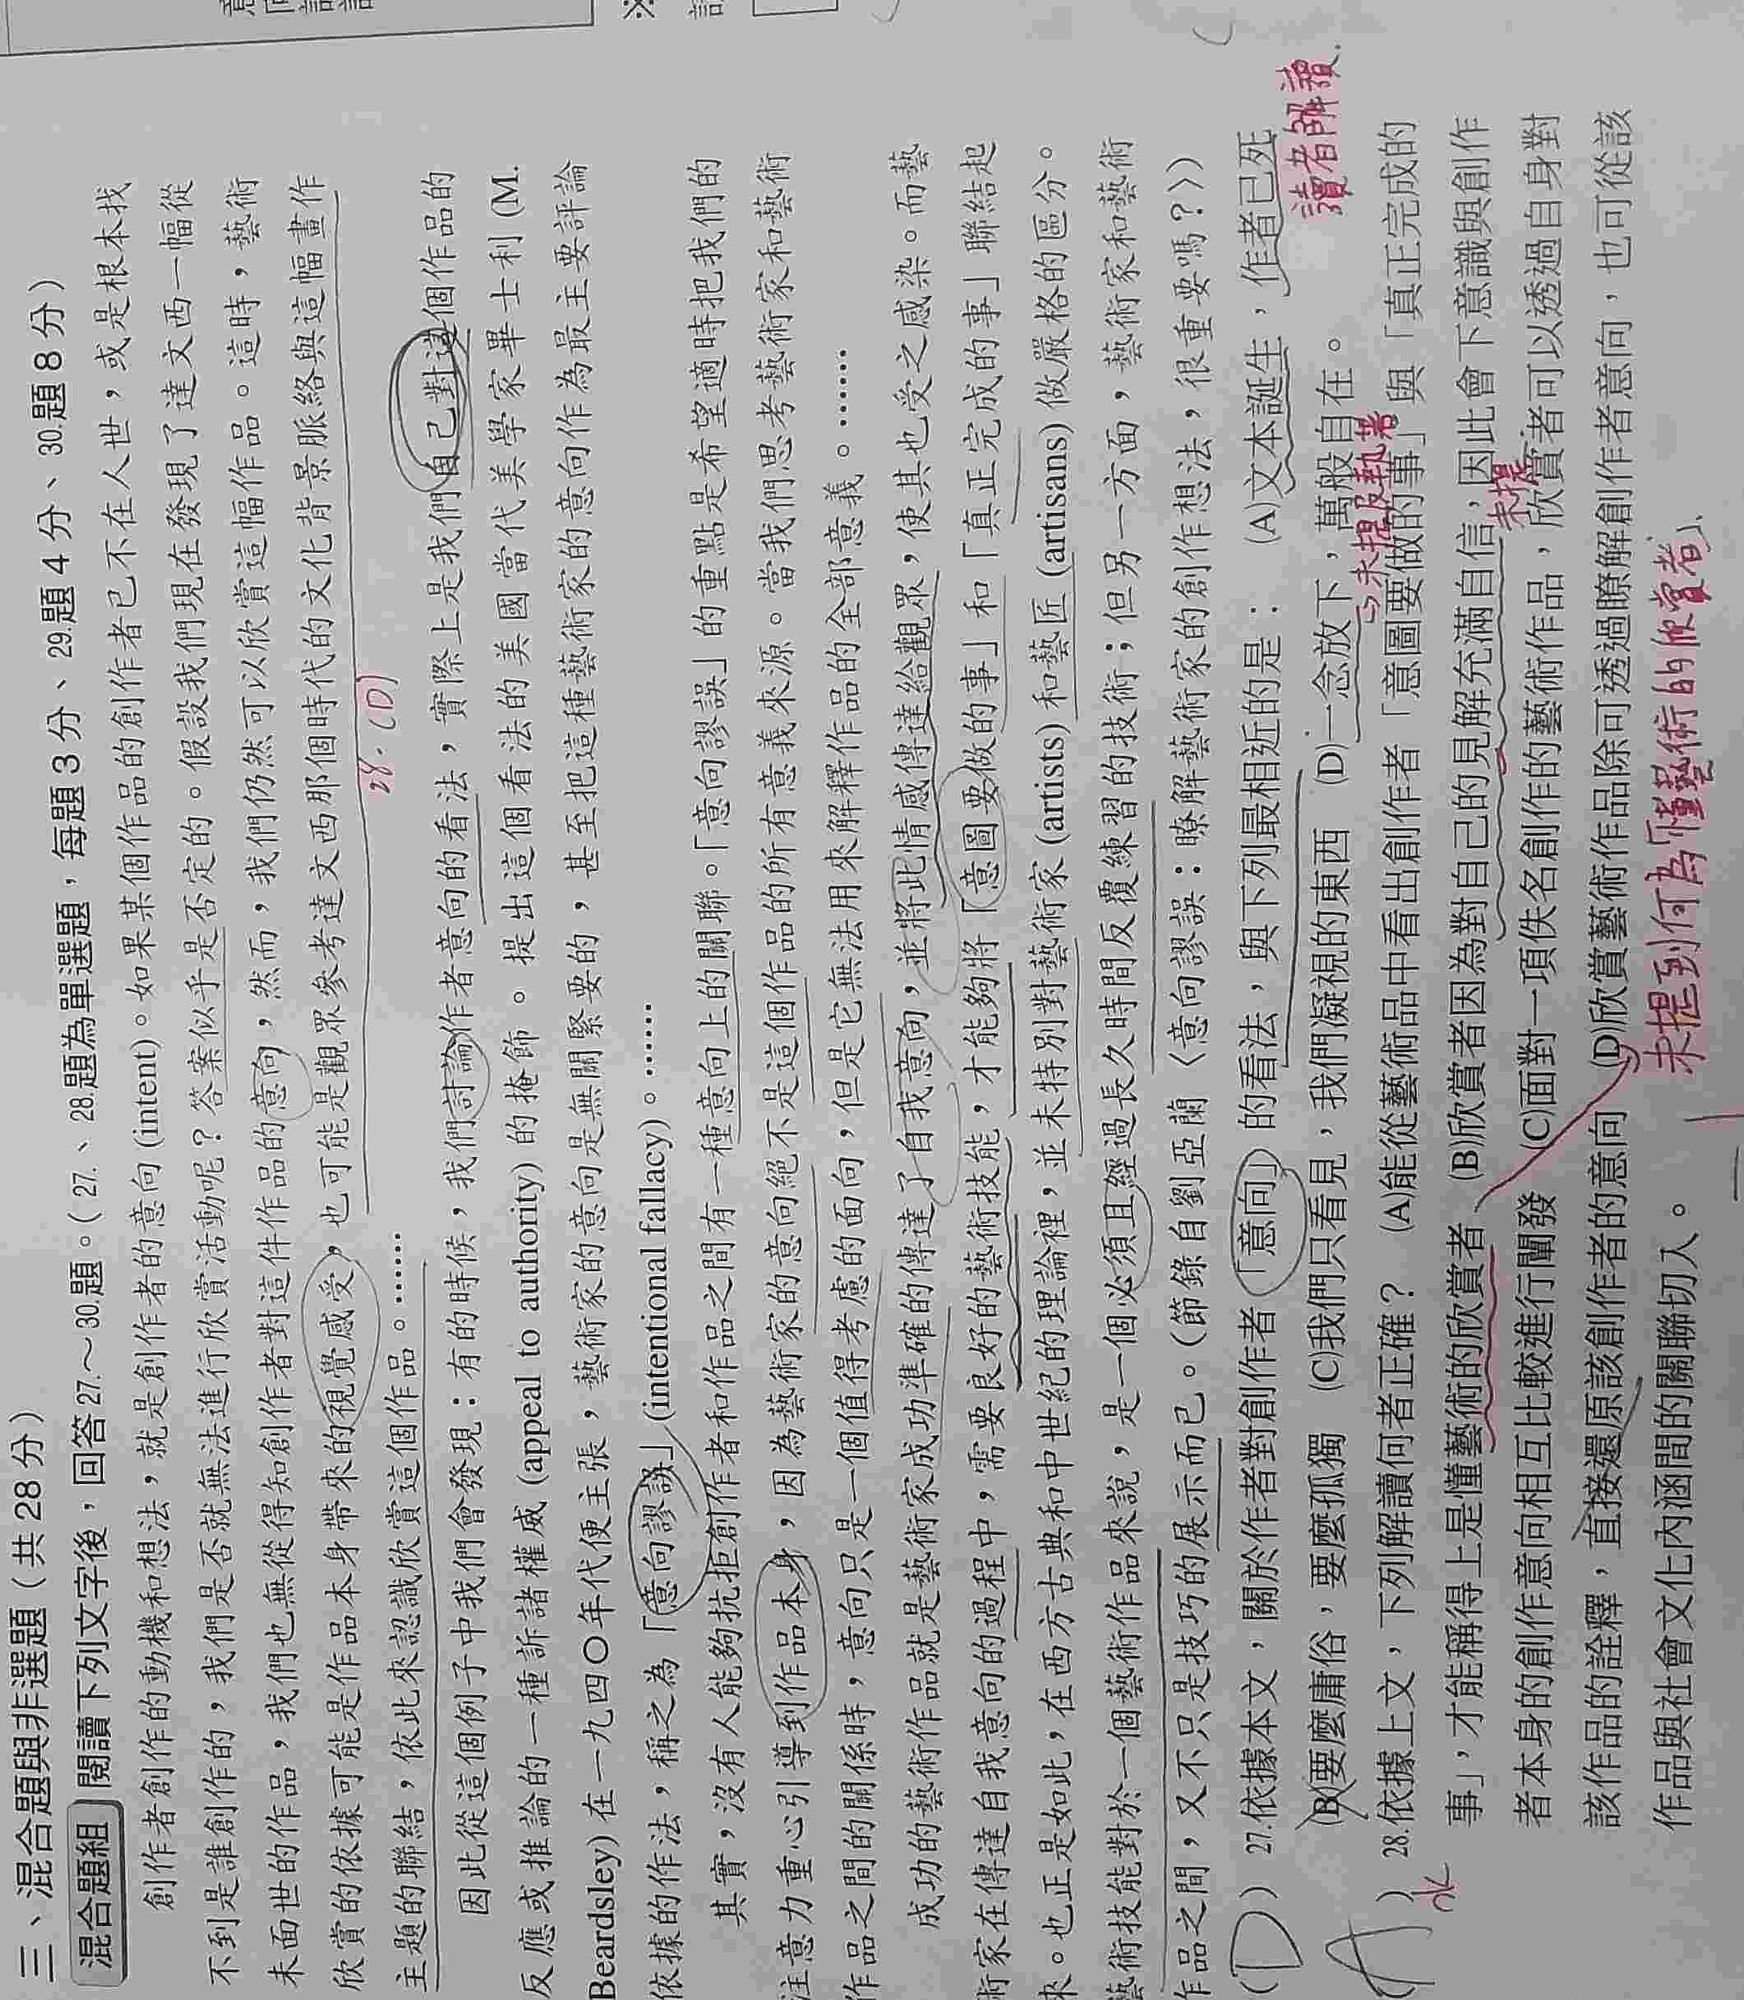 三、混合題與非選題（共 28 分）
混合題組 閱讀下列文字後，回答27.～30.題。（27.、28.題為單選題，每題 3 分、29.題 4 分、30.題 8 分）
創作者創作的動機和想法，就是創作者的意向(intent)。如果某個作品的創作者已不在人世，或是根本找
不到是誰創作的，我們是否就無法進行欣賞活動呢？答案似乎是否定的。假設我們現在發現了達文西一幅從
未面世的作品，我們也無從得知創作者對這件作品的意向，然而，我們仍然可以欣賞這幅作品。這時，藝術
欣賞的依據可能是作品本身帶來的視覺感受，也可能是觀眾參考達文西那個時代的文化背景脈絡與這幅畫作
主題的聯結，依此來認識欣賞這個作品。……
28.(D)
因此從這個例子中我們會發現：有的時候，我們討論作者意向的看法，實際上是我們自己對這個作品的
反應或推論的一種訴諸權威(appeal to authority)的掩飾。提出這個看法的美國當代美學家畢士利(M.
Beardsley)在一九四〇年代便主張，藝術家的意向是無關緊要的，甚至把這種藝術家的意向作為最主要評論
依據的作法，稱之為「意向謬誤」(intentional fallacy)。……
其實，沒有人能夠抗拒創作者和作品之間有一種意向上的關聯。「意向謬誤」的重點是希望適時把我們的
注意力重心引導到作品本身，因為藝術家的意向絕不是這個作品的所有意義來源。當我們思考藝術家和藝術
作品之間的關係時，意向只是一個值得考慮的面向，但是它無法用來解釋作品的全部意義。……
成功的藝術作品就是藝術家成功準確的傳達了自我意向，並將此情感傳達給觀眾，使其也受之感染。而藝
術家在傳達自我意向的過程中，需要良好的藝術技能，才能夠將「意圖要做的事」和「真正完成的事」聯結起
來。也正是如此，在西方古典和中世紀的理論裡，並未特別對藝術家(artists)和藝匠(artisans)做嚴格的區分。
藝術技能對於一個藝術作品來說，是一個必須且經過長久時間反覆練習的技術；但另一方面，藝術家和藝術
作品之間，又不只是技巧的展示而已。（節錄自劉亞蘭〈意向謬誤：瞭解藝術家的創作想法，很重要嗎？〉）
(D) 27.依據本文，關於作者對創作者「意向」的看法，與下列最相近的是： (A)文本誕生，作者已死
讀者解讀.
(B)要麼庸俗，要麼孤獨 (C)我們只看見，我們凝視的東西 (D)一念放下，萬般自在。
→未提及執著
(A) 28.依據上文，下列解讀何者正確？ (A)能從藝術品中看出創作者「意圖要做的事」與「真正完成的
事」，才能稱得上是懂藝術的欣賞者 (B)欣賞者因為對自己的見解充滿自信，因此會下意識與創作
未提
者本身的創作意向相互比較進行闡發 (C)面對一項佚名創作的藝術作品，欣賞者可以透過自身對
該作品的詮釋，直接還原該創作者的意向 (D)欣賞藝術作品除可透過瞭解創作者意向，也可從該
作品與社會文化內涵間的關聯切入。
未提到何為「懂藝術的欣賞者」